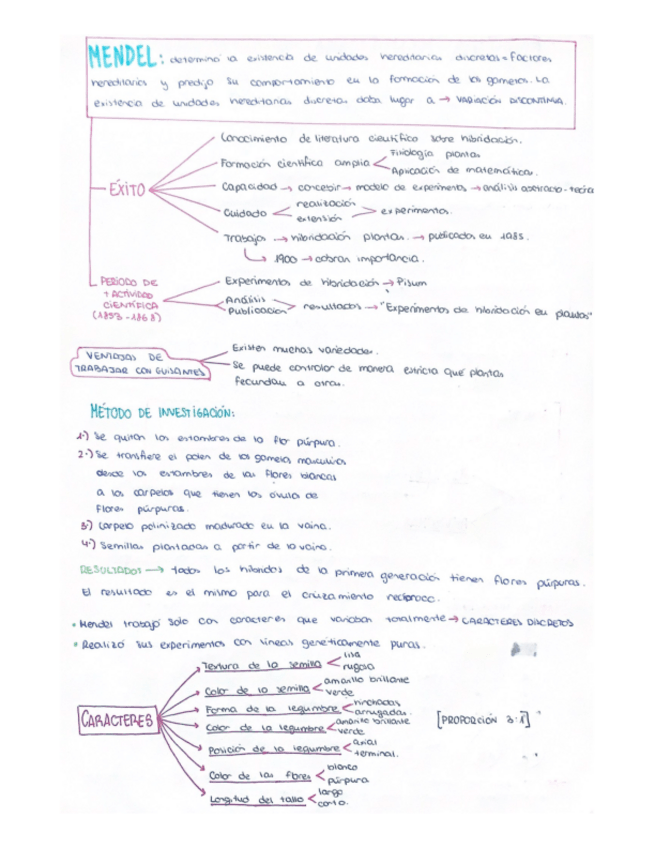 MENDEL: determinó la existencia de unidades hereditarias discretas = factores
hereditarios y predijo su comportamiento en la formación de los gametos. La
existencia de unidades hereditarias discretas daba lugar a → VARIACIÓN DISCONTINUA.
ÉXITO
Conocimiento de literatura científica sobre hibridación.
Formación científica amplia
Fisiología plantas
Aplicación de matemáticas.
Capacidad → concebir → modelo de experimentos → análisis abstracto-teoría
Cuidado
realización
extensión
experimentos.
Trabajos → hibridación plantas. → publicados en 1985.
1900 → cobran importancia.
PERÍODO DE
+ ACTIVIDAD
CIENTÍFICA
(1853-1868)
Experimentos de hibridación → Pisum
Análisis
Publicación
resultados → "Experimentos de hibridación en plantas"
VENTAJAS DE
TRABAJAR CON GUISANTES
Existen muchas variedades.
Se puede controlar de manera estricta qué plantas
fecundan a otras.
MÉTODO DE INVESTIGACIÓN:
1.) Se quitan los estambres de la flor púrpura.
2.) Se transfiere el polen de los gametos masculinos
desde los estambres de las flores blancas
a los carpelos que tienen los óvulos de
flores púrpuras.
3.) Carpelo polinizado madurado en la vaina.
4.) Semillas plantadas a partir de la vaina.
RESULTADOS → todos los híbridos de la primera generación tienen flores púrpuras.
El resultado es el mismo para el cruzamiento recíproco.
• Mendel trabajó solo con caracteres que variaban totalmente → CARACTERES DISCRETOS
• Realizó sus experimentos con líneas genéticamente puras.
CARACTERES
Textura de la semilla
lisa
rugosa
Color de la semilla
amarillo brillante
verde
Forma de la legumbre
hinchadas
arrugadas.
Color de la legumbre
amarillo brillante
verde
Posición de la legumbre
axial
terminal.
Color de las flores
blanco
púrpura
Longitud del tallo
largo
corto.
[PROPORCIÓN 3:1]